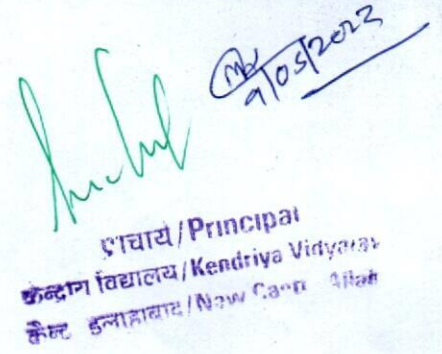 9/05/2023
प्राचार्य/Principal
केन्द्रीय विद्यालय/Kendriya Vidyalay
कैन्ट इलाहाबाद/New Cantt Allah